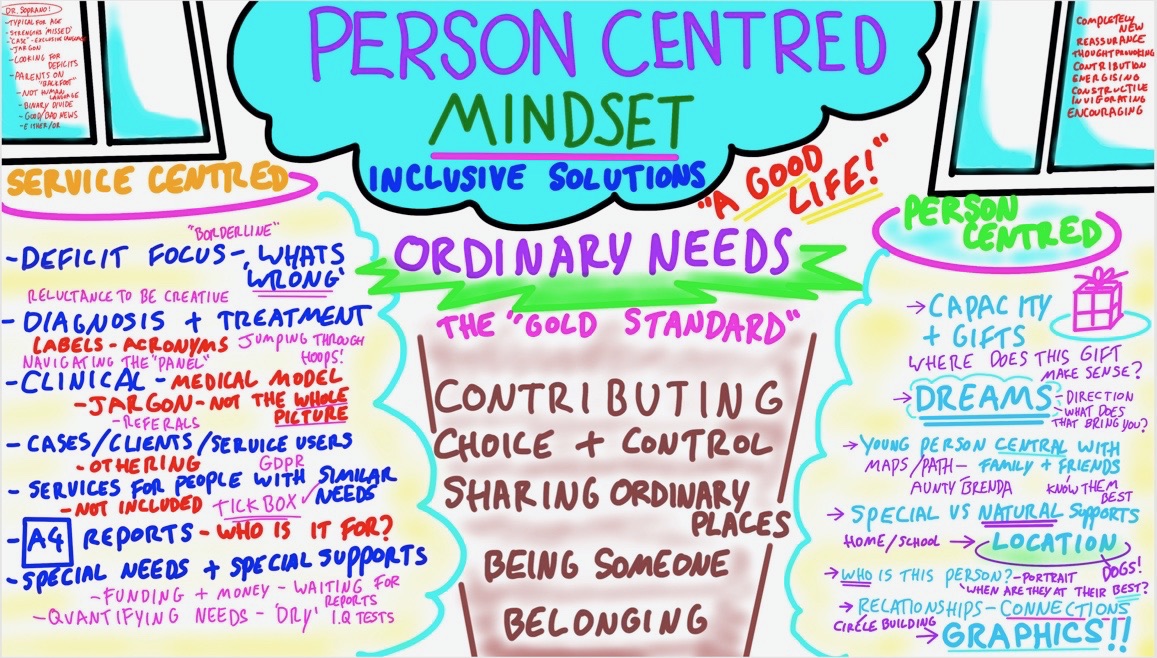 DR. SOPRANO!
- TYPICAL FOR AGE
- STRENGTHS 'MISSED'
- "CASE" - EXCLUSIVE LANGUAGE
- JARGON
- LOOKING FOR DEFICITS
- PARENTS ON "BACKFOOT"
- NOT HUMAN LANGUAGE
- BINARY DIVIDE
- GOOD/BAD NEWS
- EITHER/OR
PERSON CENTRED
MINDSET
INCLUSIVE SOLUTIONS
COMPLETELY
NEW
REASSURANCE
THOUGHT PROVOKING
CONTRIBUTION
ENERGISING
CONSTRUCTILE
INVIGORATING
ENCOURAGING
SERVICE CENTRED
"BORDERLINE"
- DEFICIT FOCUS - 'WHATS
WRONG'
RELUCTANCE TO BE CREATIVE
- DIAGNOSIS + TREATMENT
LABELS - ACRONYMS JUMPING THROUGH
HOOPS!
NAVIGATING THE "PANEL"
- CLINICAL - MEDICAL MODEL
- JARGON - NOT THE WHOLE
PICTURE
- REFERALS
- CASES/CLIENTS/SERVICE USERS
- OTHERING GDPR
- SERVICES FOR PEOPLE WITH SIMILAR
NEEDS
- NOT INCLUDED TICK BOX ✓
- A4 REPORTS - WHO IS IT FOR?
- SPECIAL NEEDS + SPECIAL SUPPORTS
- FUNDING + MONEY - WAITING FOR
REPORTS
- QUANTIFYING NEEDS - 'DRY' I.Q TESTS
"A GOOD
LIFE!"
ORDINARY NEEDS
THE "GOLD STANDARD"
CONTRIBUTING
CHOICE + CONTROL
SHARING ORDINARY
PLACES
BEING SOMEONE
BELONGING
PERSON
CENTRED
→ CAPACITY
+ GIFTS
WHERE DOES THIS GIFT
MAKE SENSE?
→ DREAMS - DIRECTION
- WHAT DOES
THAT BRING YOU?
→ YOUNG PERSON CENTRAL WITH
MAPS/PATH - FAMILY + FRIENDS
AUNTY BRENDA KNOW THEM
BEST
→ SPECIAL VS NATURAL SUPPORTS
HOME/SCHOOL → LOCATION
DOGS!
→ WHO IS THIS PERSON? - PORTRAIT
WHEN ARE THEY AT THEIR BEST?
→ RELATIONSHIPS - CONNECTIONS
CIRCLE BUILDING
→ GRAPHICS!!